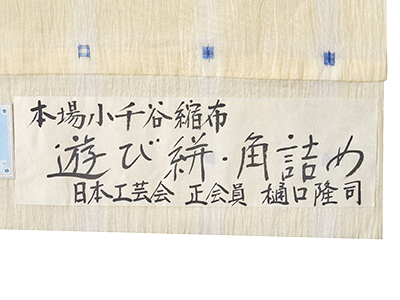 本場小千谷縮布
遊び絣・角詰め
日本工芸会 正会員 樋口隆司